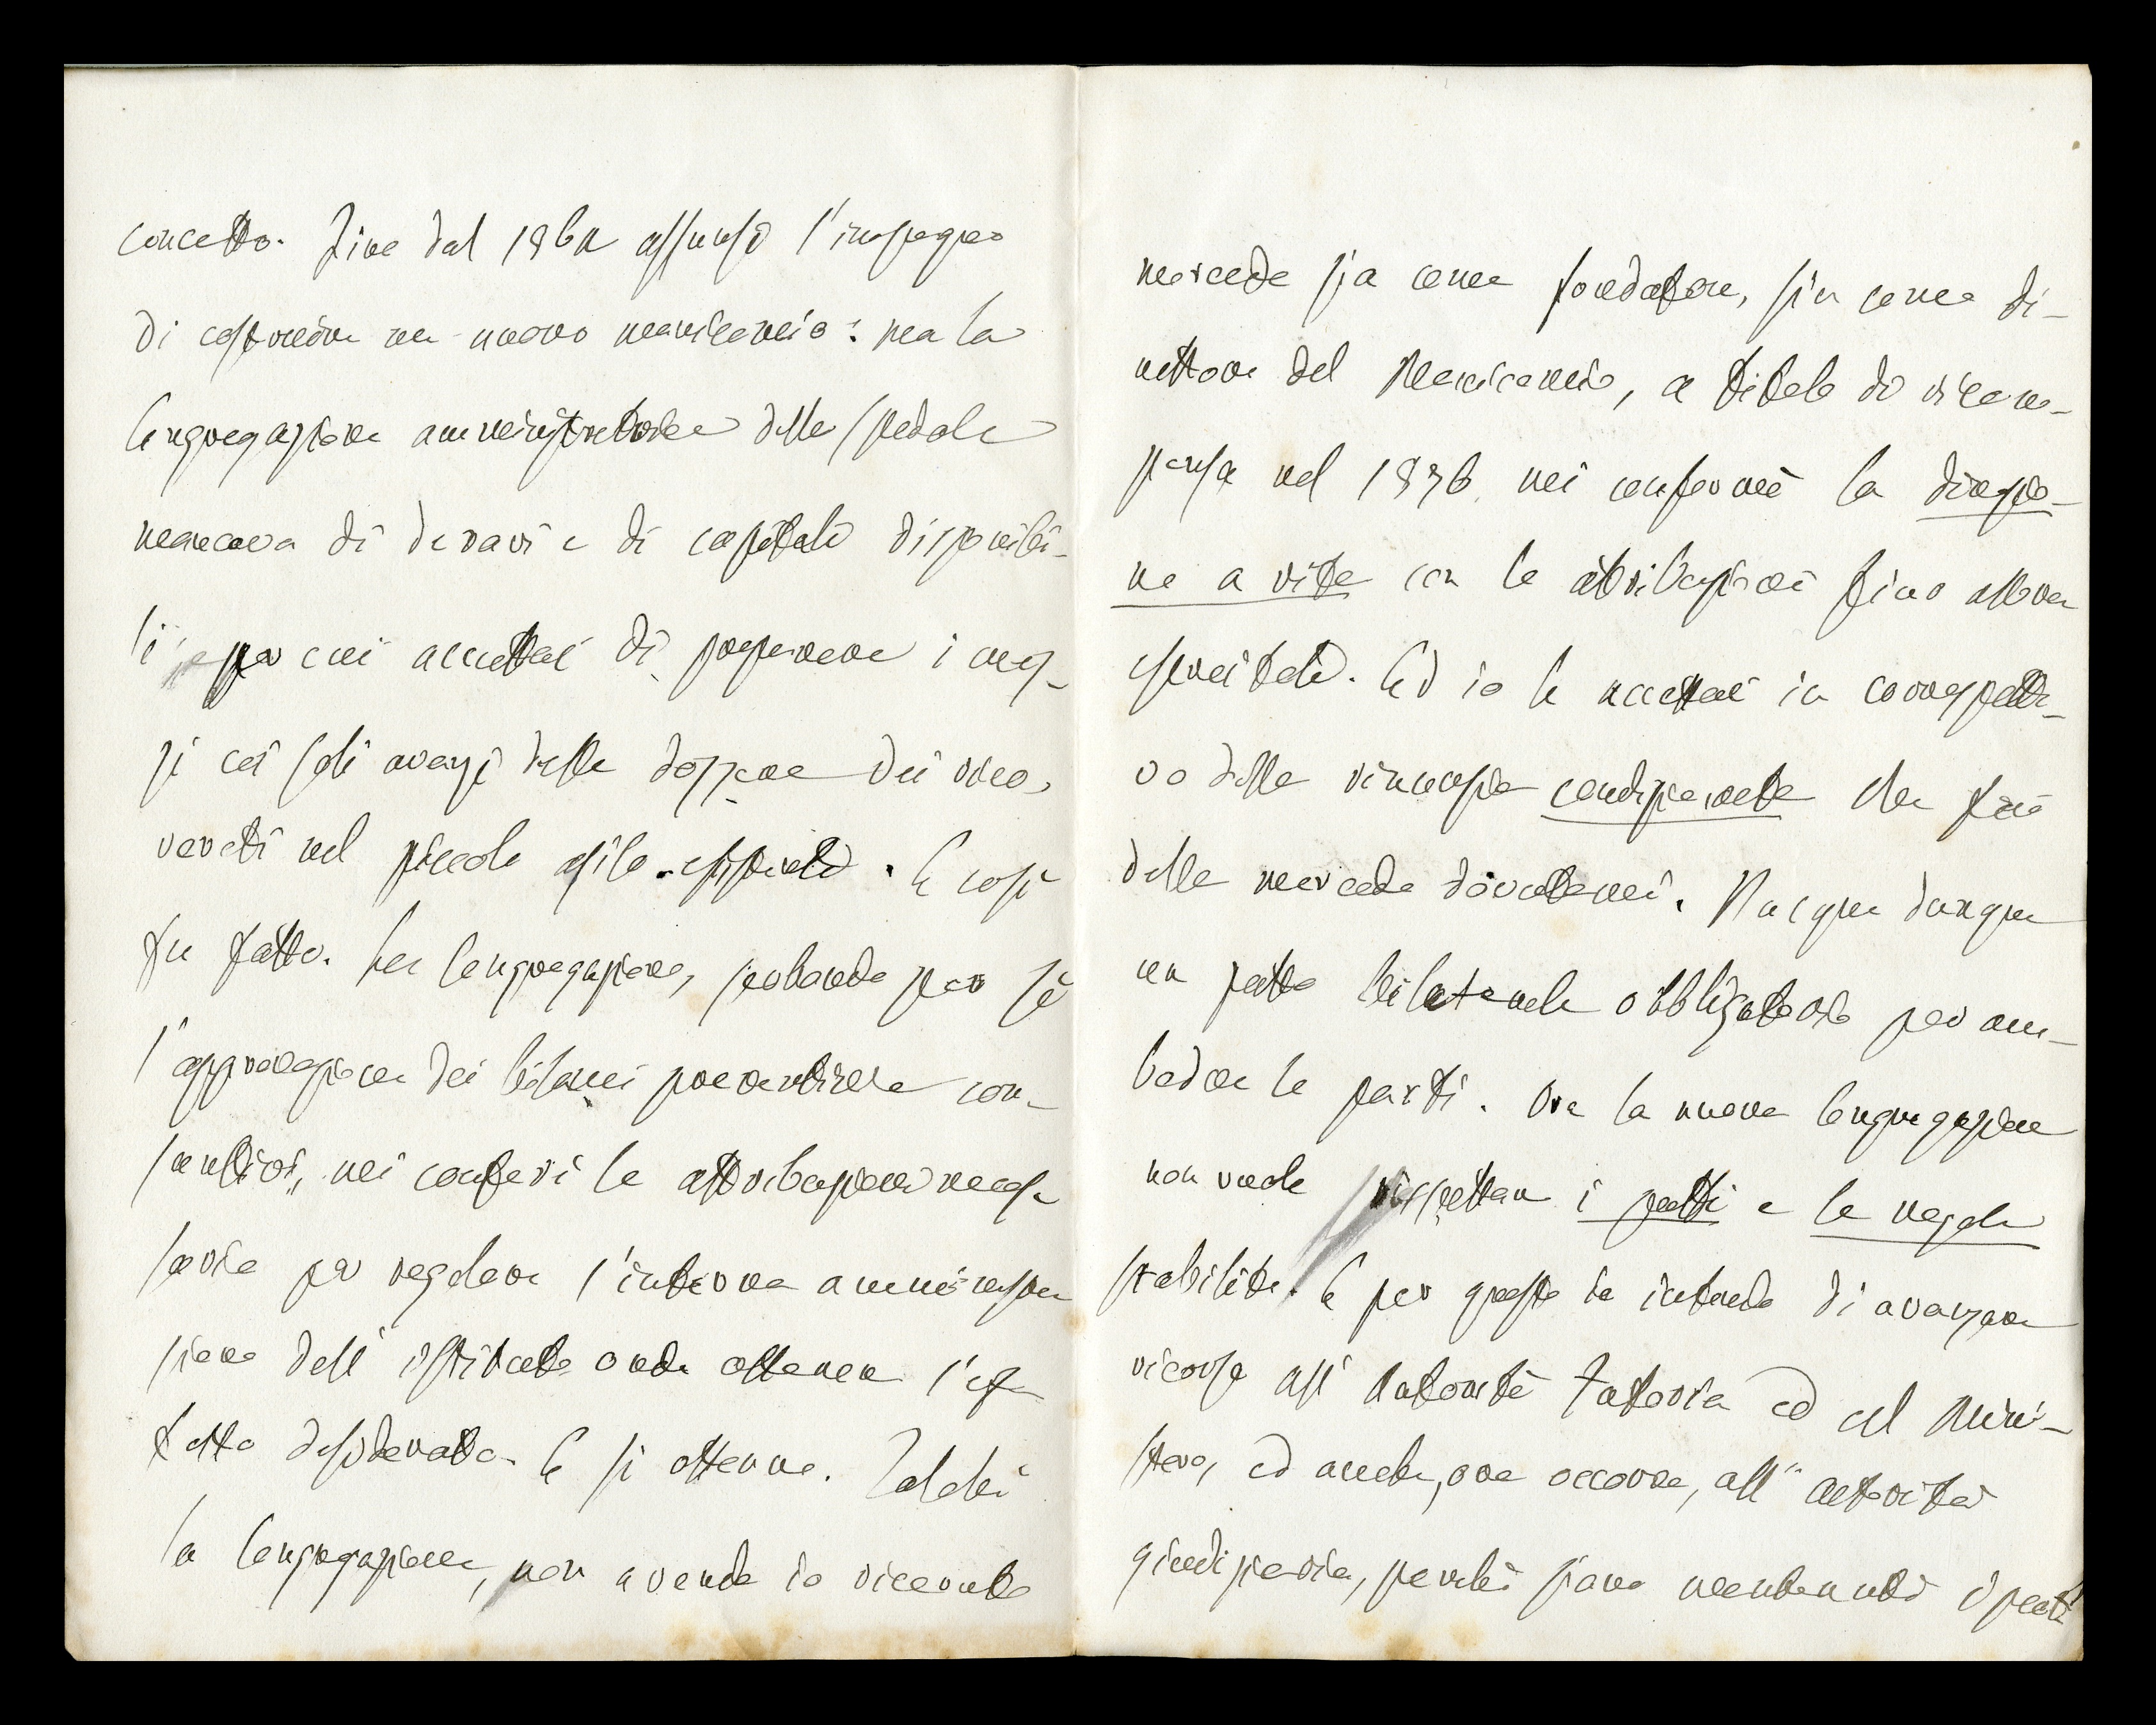 concetto. Fino dal 186 assunsi l'impegno
di costruire un nuovo manicomio: ma la
Congregazione amministratrice dello Spedale
mancava di denari e di capitali disponibi-
li per cui accettai di preparare i mez-
zi coi soli avanzi delle dozzene dei rico-
verati nel piccolo asilo esistente. E così
fu fatto. La Congregazione, serbando per sè
l'approvazione dei bilanci preventivi e con-
suntivi, mi conferì le attribuzioni neces-
sarie per regolare l'interna amministra
zione dell'istituto onde ottenere l'ef-
fetto desiderato. E si ottenne. Talchè
la Congregazione, non avendo io ricevuto
mercede sia come fondatore, sia come di-
rettore del Manicomio, a titolo di ricom-
pensa nel 1876 mi confermò la direzio-
ne a vita con le attribuzioni fino allora
esercitate. Ed io le accettai in correspetti-
vo della rinunzia condizionata che feci
della mercede dovutami. Nacque dunque
un patto bilaterale obbligatorio per am-
bedue le parti. Ora la nuova Congregazione
non vuole rispettare i patti e le regole
stabilite. E per questo io intendo di avanzare
ricorso all'Autorità Tutoria ed al Mini-
stero, ed anche, ove occorre, all'autorità
giudiziaria, perchè siano mantenuti i patti